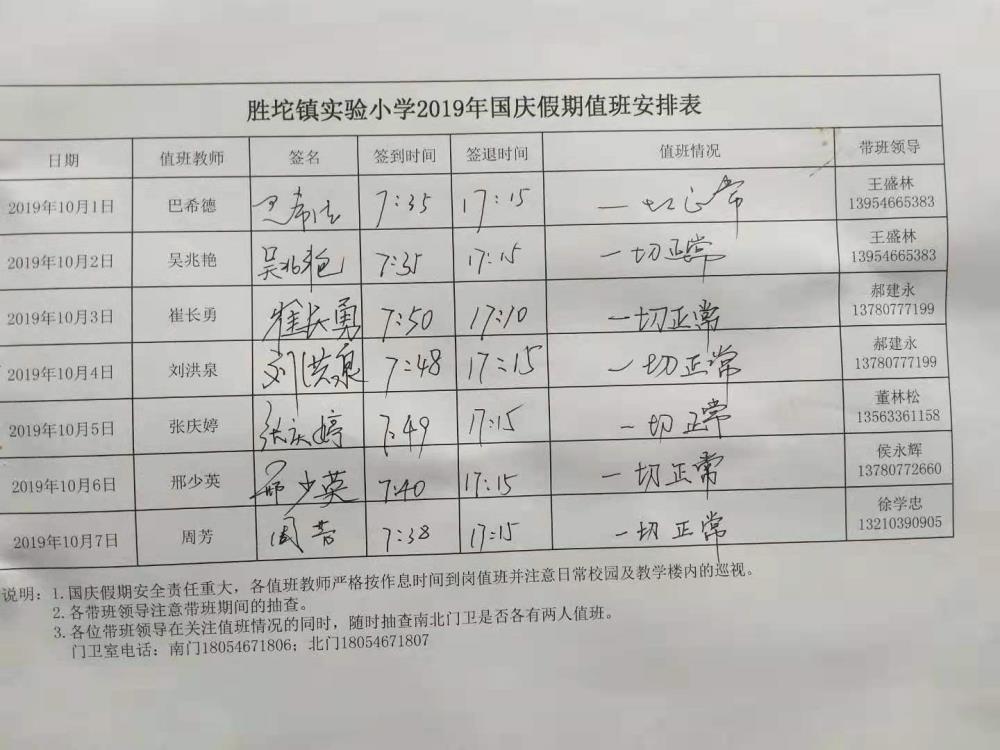 胜坨镇实验小学2019年国庆假期值班安排表
日期 值班教师 签名 签到时间 签退时间 值班情况 带班领导
2019年10月1日 巴希德 巴希德 7:35 17:15 一切正常 王盛林 13954665383
2019年10月2日 吴兆艳 吴兆艳 7:35 17:15 一切正常 王盛林 13954665383
2019年10月3日 崔长勇 崔长勇 7:50 17:10 一切正常 郝建永 13780777199
2019年10月4日 刘洪泉 刘洪泉 7:48 17:15 一切正常 郝建永 13780777199
2019年10月5日 张庆婷 张庆婷 7:49 17:15 一切正常 董林松 13563361158
2019年10月6日 邢少英 邢少英 7:40 17:15 一切正常 侯永辉 13780772660
2019年10月7日 周芳 周芳 7:38 17:15 一切正常 徐学忠 13210390905
说明：1.国庆假期安全责任重大，各值班教师严格按作息时间到岗值班并注意日常校园及教学楼内的巡视。
2.各带班领导注意带班期间的抽查。
3.各位带班领导在关注值班情况的同时，随时抽查南北门卫是否各有两人值班。
门卫室电话：南门18054671806；北门18054671807